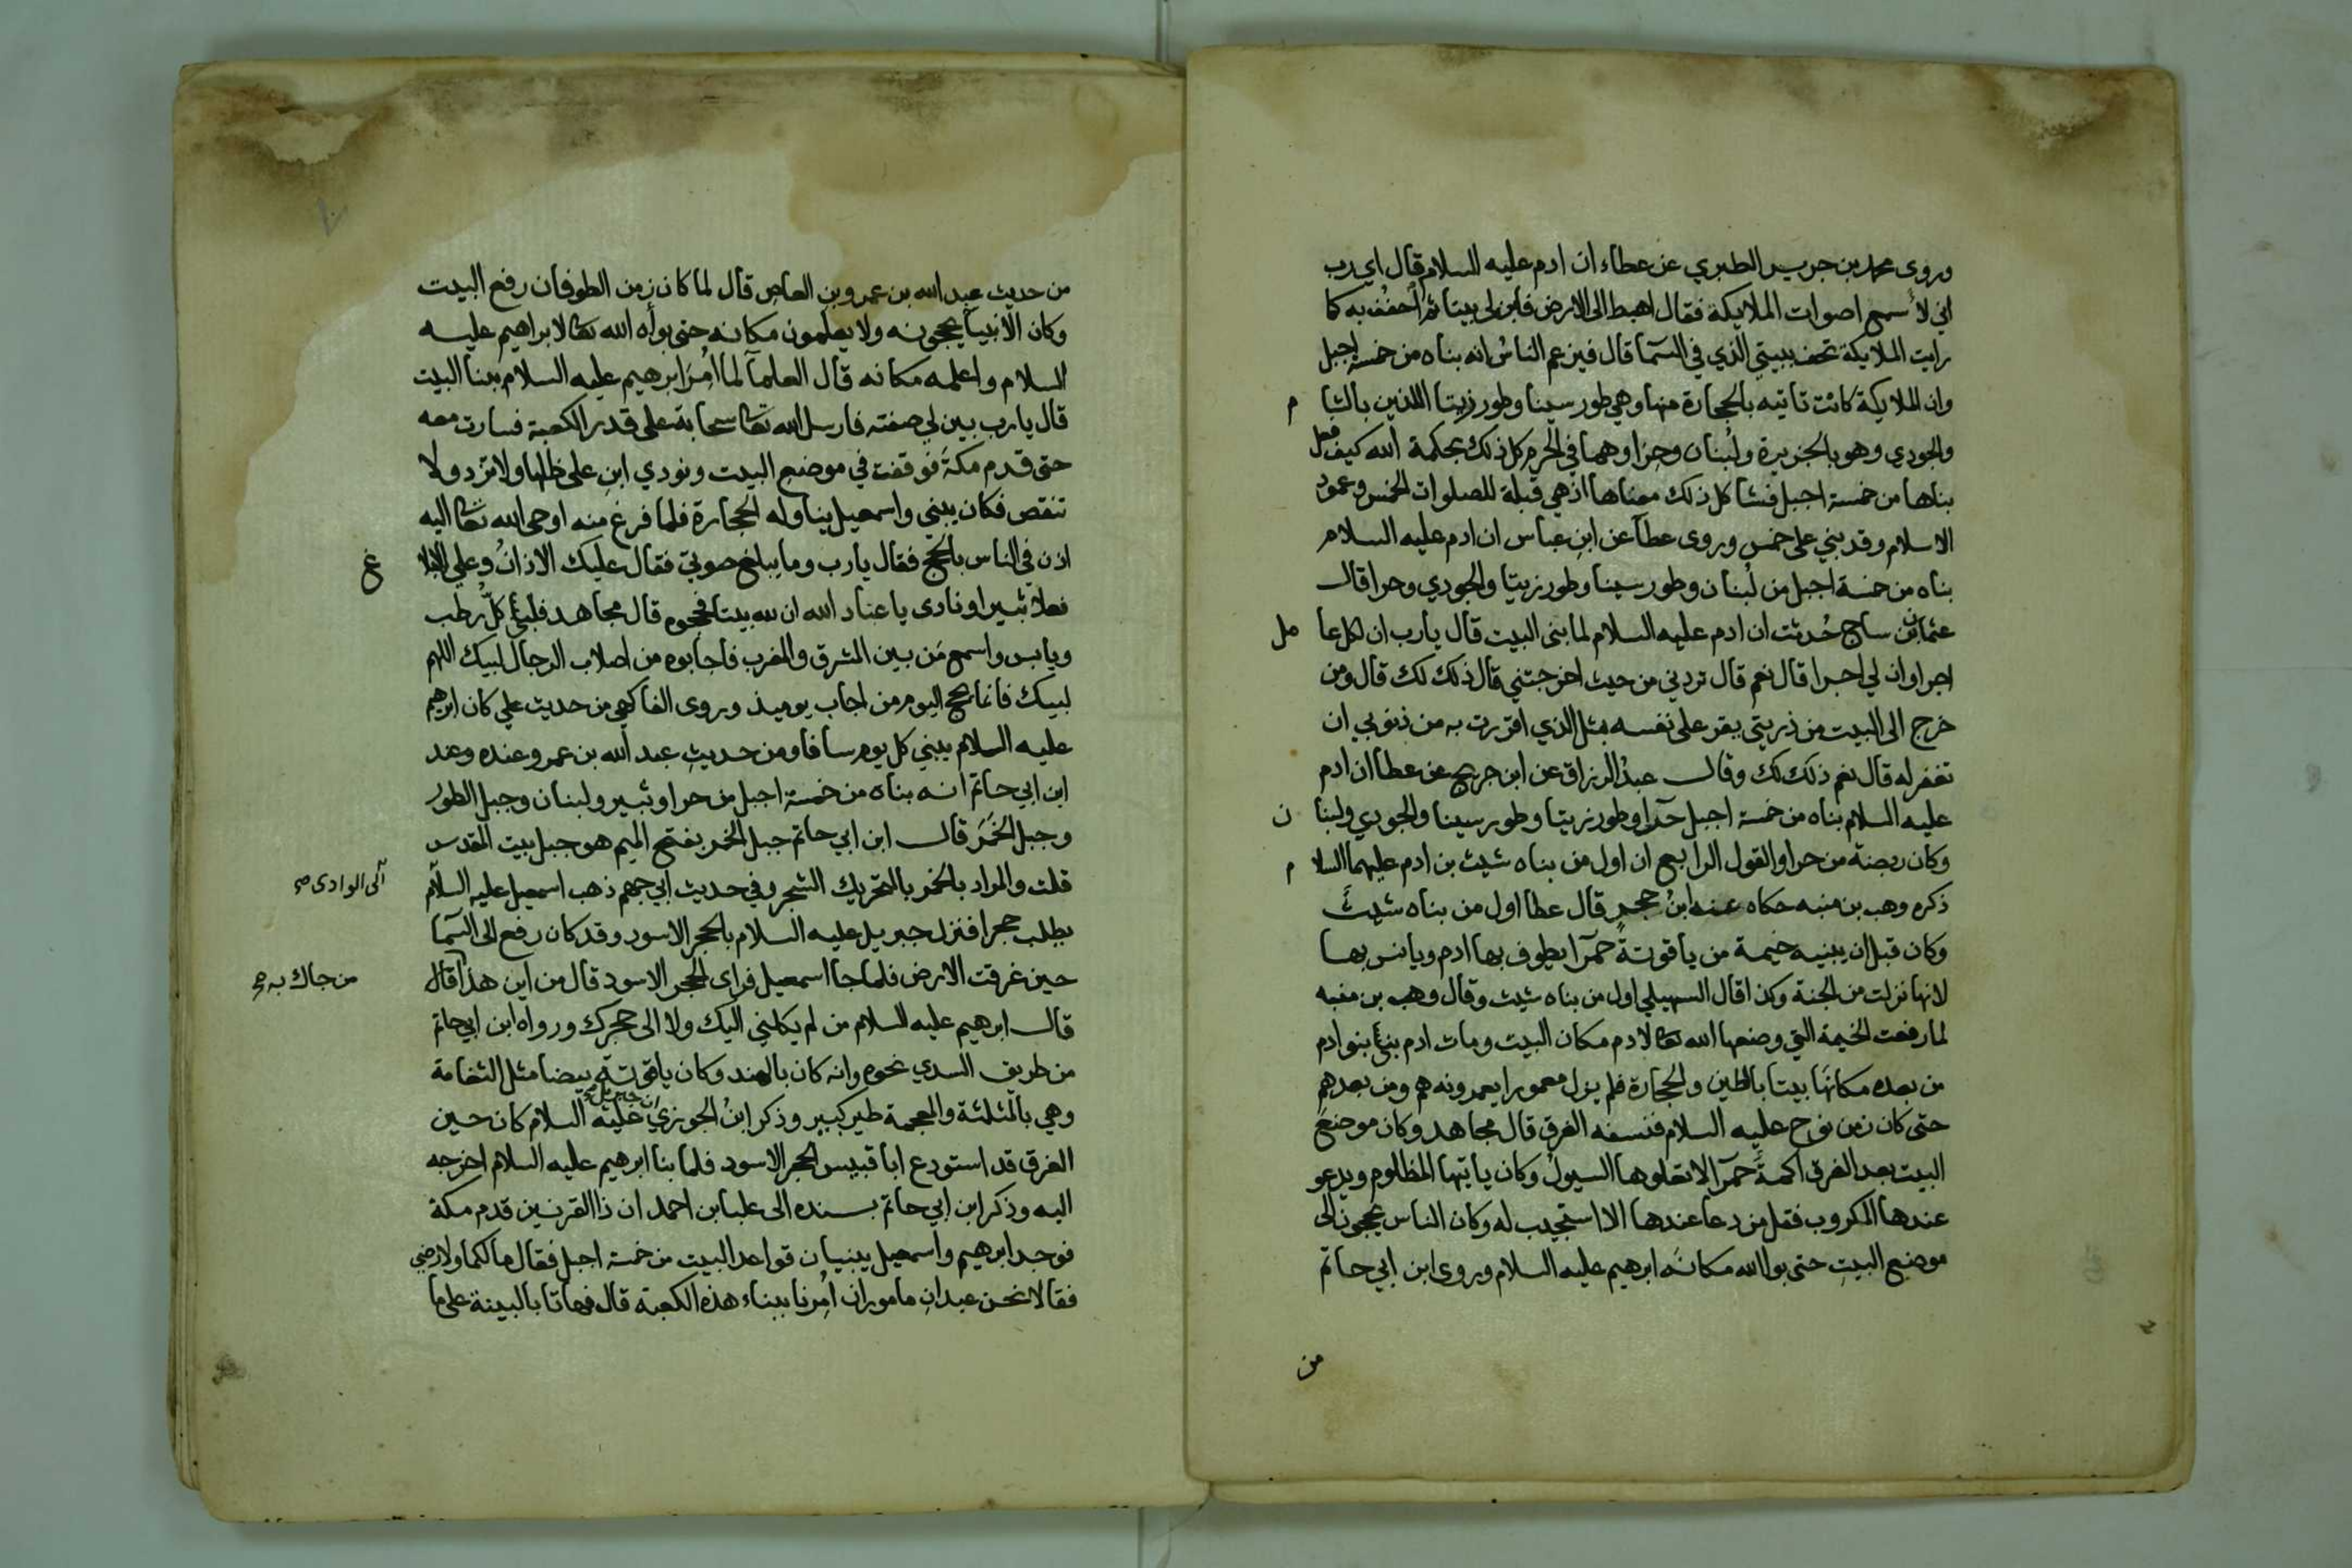 وروى محمد بن جرير الطبري عن عطاء ان ادم عليه السلام قال اي رب
اني لا سمع اصوات الملايكة فقال اهبط الى الارض فابن لي بيتا ثم احفف به كما
رايت الملايكة تحف ببيتي الذي في السما قال فيزعم الناس انه بناه من خمسة اجبل
وان الملايكة كانت تاتيه بالحجارة منها وهي طور سينا وطور زيتا اللذين بالشا م
والجودي وهو بالجزيرة ولبنان وحرا وهما في الحرم كل ذلك بحكمة الله كيف فعل
بناها من خمسة اجبل فشاكل ذلك معناها اذ هي قبلة للصلوات الخمس وعمود
الاسلام وقد بني على خمس وروى عطا عن ابن عباس ان ادم عليه السلام
بناه من خمسة اجبل من لبنان وطور سينا وطور زيتا والجودي وحرا قال
عثمان بن ساج حُدثت ان ادم عليه السلام لما بنى البيت قال يارب ان لكل عا مل
اجرا وان لي اجرا قال نعم قال تردني من حيث اخرجتني قال ذلك لك قال ومن
خرج الى البيت من ذريتي يقر على نفسه بمثل الذي اقررت به من ذنوبي ان
تغفر له قال نعم ذلك لك وقال عبد الرزاق عن ابن جريج عن عطا ان ادم
عليه السلام بناه من خمسة اجبل حرا وطور زيتا وطور سينا والجودي ولبنا ن
وكان ربضه من حرا والقول الرابع ان اول من بناه شيث بن ادم عليهما السلا م
ذكره وهب بن منبه حكاه عنه ابن حجر قال عطا اول من بناه شيث
وكان قبل ان يبنيه خيمة من ياقوتةٍ حمرا يطوف بها ادم ويانس بها
لانها نزلت من الجنة وكذا قال السهيلي اول من بناه شيث وقال وهب بن منبه
لما رفعت الخيمة التي وضعها الله تعا لادم مكان البيت ومات ادم بنى بنو ادم
من بعده مكانها بيتا بالطين والحجارة فلم يزل معمورا يعمرونه هم ومن بعدهم
حتى كان زمن نوح عليه السلام فنسفه الغرق قال مجاهد وكان موضع
البيت بعد الغرق اكمةً حمرا لا تعلوها السيول وكان ياتيها المظلوم ويدعو
عندها المكروب فقل من دعا عندها الا استجيب له وكان الناس يحجون الى
موضع البيت حتى بوا الله مكانه ابرهيم عليه السلام وروى ابن ابي حاتم
من
من حديث عبد الله بن عمرو بن العاص قال لما كان زمن الطوفان رفع البيت
وكان الانبيا يحجونه ولا يعلمون مكانه حتى بوأه الله تعا لابراهيم عليه
السلام واعلمه مكانه قال العلما لما امر ابرهيم عليه السلام ببنا البيت
قال يارب بين لي صفته فارسل الله تعا سحابة على قدر الكعبة فسارت معه
حتى قدم مكة فوقفت في موضع البيت ونودي ابن على ظلها ولا تزد ولا
تنقص فكان يبني واسمعيل يناوله الحجارة فلما فرغ منه اوحى الله تعا اليه
اذن في الناس بالحج فقال يارب وما يبلغ صوتي فقال عليك الاذان وعلي البلا غ
فعلا ثبيرا ونادى يا عباد الله ان لله بيتا فحجوه قال مجاهد فلبى كل رطب
ويابس واسمع من بين المشرق والمغرب فاجابوه من اصلاب الرجال لبيك اللهم
لبيك فانما يحج اليوم من اجاب يوميذ وروى الفاكهي من حديث علي كان ابرهيم
عليه السلام يبني كل يوم سافا ومن حديث عبد الله بن عمرو عنده وعند
ابن ابي حاتم انه بناه من خمسة اجبل من حرا وثبير ولبنان وجبل الطور
وجبل الخَمَر قال ابن ابي حاتم جبل الخمر بفتح الميم هو جبل بيت المقدس
قلت والمراد بالخمر بالتحريك الشجر وفي حديث ابي جهم ذهب اسمعيل عليه السلام الى الوادى صح
يطلب حجرا فنزل جبريل عليه السلام بالحجر الاسود وقد كان رفع الى السما
حين غرقت الارض فلما جا اسمعيل فراى الحجر الاسود قال من اين هذا قال من جاك به صح
قال ابرهيم عليه السلام من لم يكلني اليك ولا الى حجرك ورواه ابن ابي حاتم
من طريق السدي نحوه وانه كان بالهند وكان ياقوتة بيضا مثل الثغامة
وهي بالمثلثة والمعجمة طير كبير وذكر ابن الجوزي ان جبريل صح عليه السلام كان حين
الغرق قد استودع ابا قبيس الحجر الاسود فلما بنا ابرهيم عليه السلام اخرجه
اليه وذكر ابن ابي حاتم بسنده الى علبا بن احمد ان ذا القرنين قدم مكة
فوجد ابرهيم واسمعيل يبنيان قواعد البيت من خمسة اجبل فقال ما لكما ولارضي
فقالا نحن عبدان ماموران اُمِرنا ببناء هذه الكعبة قال فهاتا بالبينة على ما